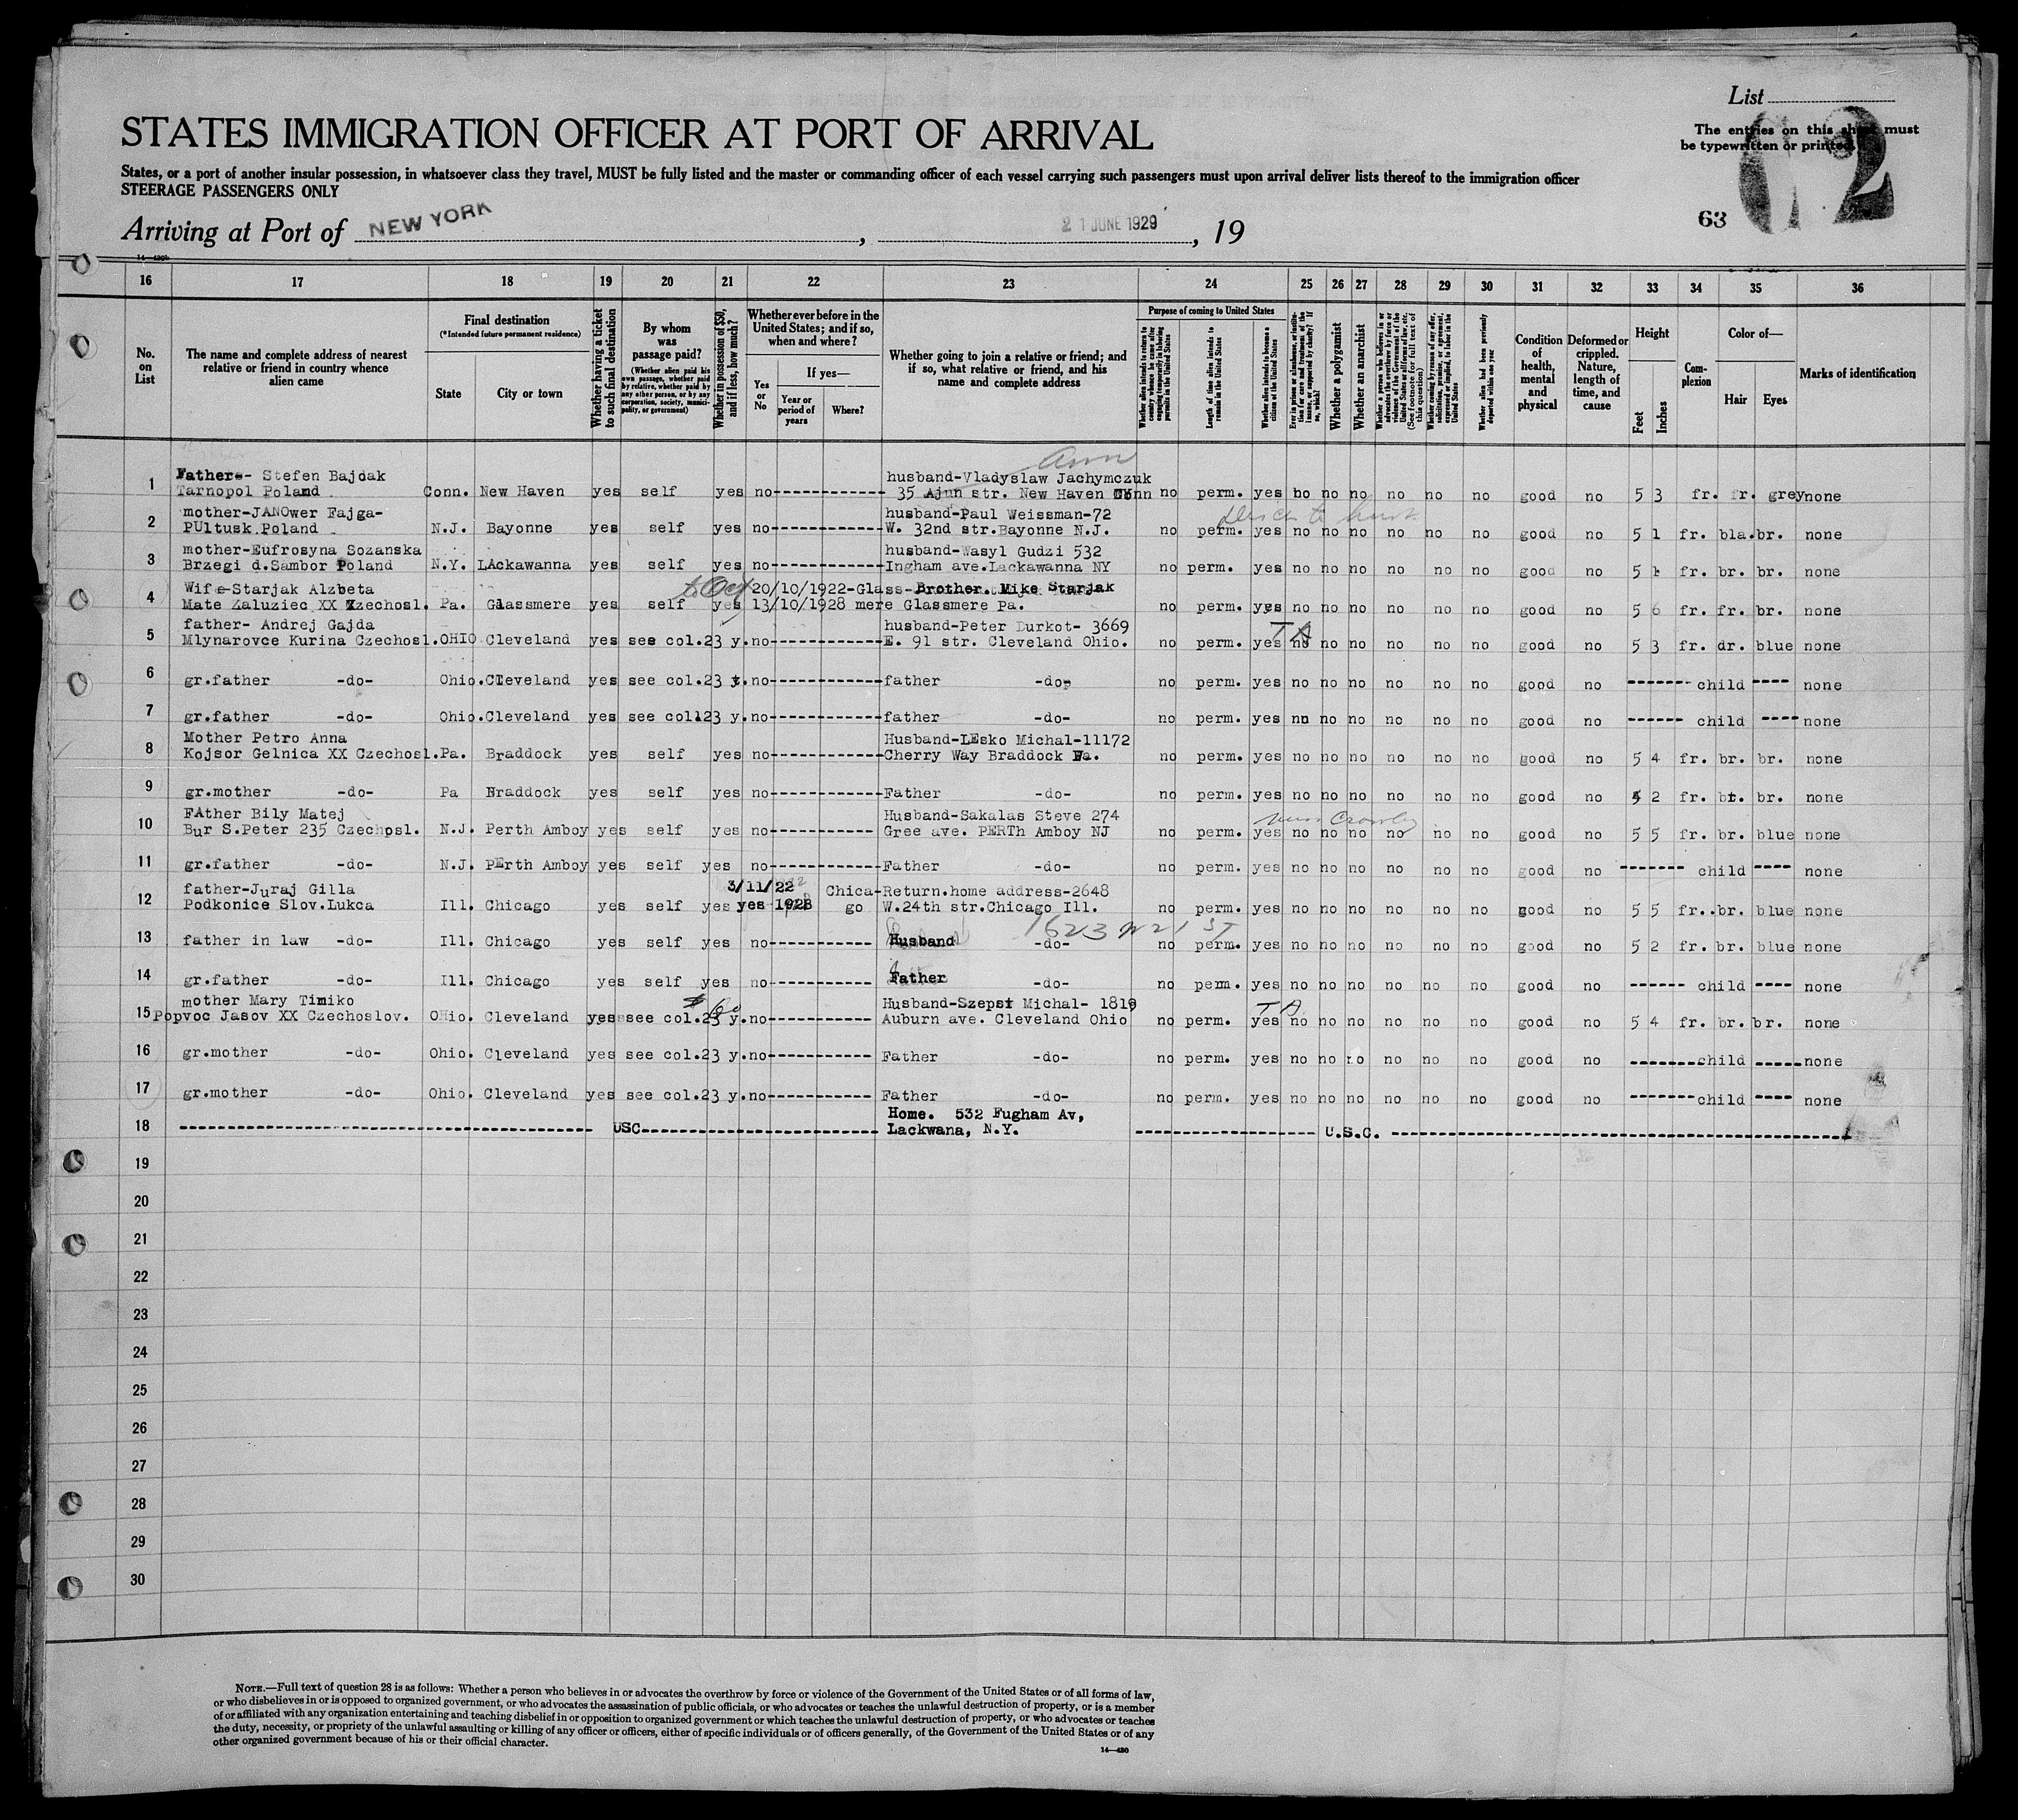 List
STATES IMMIGRATION OFFICER AT PORT OF ARRIVAL
The entries on this sheet must
be typewritten or printed
States, or a port of another insular possession, in whatsoever class they travel, MUST be fully listed and the master or commanding officer of each vessel carrying such passengers must upon arrival deliver lists thereof to the immigration officer
STEERAGE PASSENGERS ONLY
63
Arriving at Port of NEW YORK, 21 JUNE 1929, 19
16 17 18 19 20 21 22 23 24 25 26 27 28 29 30 31 32 33 34 35 36
No. on List
The name and complete address of nearest relative or friend in country whence alien came
Final destination
(*Intended future permanent residence)
State
City or town
Whether having a ticket to such final destination
By whom was passage paid?
(Whether alien paid his own passage, whether paid by relative, whether paid by any other person, or by any corporation, society, municipality, or government)
Whether in possession of $50, and if less, how much?
Whether ever before in the United States; and if so, when and where?
Yes or No
If yes—
Year or period of years
Where?
Whether going to join a relative or friend; and if so, what relative or friend, and his name and complete address
Purpose of coming to United States
Length of time alien intends to remain in the United States
Whether alien intends to become a citizen of the United States
Whether a polygamist
Whether an anarchist
Whether alien had been previously deported within one year
Condition of health, mental and physical
Deformed or crippled. Nature, length of time, and cause
Height
Feet
Inches
Complexion
Color of—
Hair
Eyes
Marks of identification
Ann
1 Father-- Stefen Bajdak husband-Vladyslaw Jachymczuk
Tarnopol Poland Conn. New Haven yes self yes no 35 Ajun str. New Haven Conn no perm. yes bo no no no no no good no 5 3 fr. fr. grey none
2 mother-JANOwer Fajga- husband-Paul Weissman-72
PUltusk Poland N.J. Bayonne yes self yes no W. 32nd str.Bayonne N.J. no perm. yes no no no no no no good no 5 1 fr. bla. br. none
3 mother-Eufrosyna Sozanska husband-Wasyl Gudzi 532
Brzegi d.Sambor Poland N.Y. LAckawanna yes self yes no Ingham ave.Lackawanna NY no perm. yes no no no no no no good no 5 1 fr. br. br. none
4 Wife-Starjak Alzbeta 20/10/1922-Glass- Brother. Mike Starjak
Mate Zaluziec XX Czechosl. Pa. Glassmere yes self yes 13/10/1928 mere Glassmere Pa. no perm. yes no no no no no no good no 5 6 fr. fr. br. none
5 father- Andrej Gajda husband-Peter Durkot- 3669
Mlynarovce Kurina Czechosl. OHIO Cleveland yes see col.23 y. no E. 91 str. Cleveland Ohio. no perm. yes no no no no no no good no 5 3 fr. dr. blue none
T A
6 gr.father -do- Ohio. Cleveland yes see col.23 y. no father -do- no perm. yes no no no no no no good no child none
7 gr.father -do- Ohio. Cleveland yes see col123 y. no father -do- no perm. yes nn no no no no no good no child none
8 Mother Petro Anna Husband-LEsko Michal-11172
Kojsor Gelnica XX Czechosl. Pa. Braddock yes self yes no Cherry Way Braddock Pa. no perm. yes no no no no no no good no 5 4 fr. br. br. none
9 gr.mother -do- Pa Braddock yes self yes no Father -do- no perm. yes no no no no no no good no 4 2 fr. br. br. none
10 FAther Bily Matej Husband-Sakalas Steve 274
Bur S.Peter 235 Czechosl. N.J. Perth Amboy yes self yes no Gree ave. PERTh Amboy NJ no perm. yes no no no no no no good no 5 5 fr. br. blue none
11 gr.father -do- N.J. PErth Amboy yes self yes no Father -do- no perm. yes no no no no no no good no child none
12 father-Juraj Gilla 3/11/22 Chica- Return.home address-2648
Podkonice Slov.Lukca Ill. Chicago yes self yes yes 1928 go W.24th str.Chicago Ill. no perm. yes no no no no no no good no 5 5 fr.. br. blue none
1623 W 21 ST
13 father in law -do- Ill. Chicago yes self yes no Husband -do- no perm. yes no no no no no no good no 5 2 fr. br. blue none
14 gr.father -do- Ill. Chicago yes self yes no Father -do- no perm. yes no no no no no no good no child none
15 mother Mary Timiko Husband-Szepsi Michal- 1819
Popvoc Jasov XX Czechoslov. OHio. Cleveland yes see col.23 y. no Auburn ave. Cleveland Ohio no perm. yes no no no no no no good no 5 4 fr. br. br. none
T A
16 gr.mother -do- Ohio. Cleveland yes see col.23 y. no Father -do- no perm. yes no no no no no no good no child none
17 gr.mother -do- Ohio. Cleveland yes see col.23 y. no Father -do- no perm. yes no no no no no no good no child none
Home. 532 Fugham Av,
18 USC Lackwana, N.Y. U.S.C.
19
20
21
22
23
24
25
26
27
28
29
30
NOTE.—Full text of question 28 is as follows: Whether a person who believes in or advocates the overthrow by force or violence of the Government of the United States or of all forms of law,
or who disbelieves in or is opposed to organized government, or who advocates the assassination of public officials, or who advocates or teaches the unlawful destruction of property, or is a member
of or affiliated with any organization entertaining and teaching disbelief in or opposition to organized government or which teaches the unlawful destruction of property, or who advocates or teaches
the duty, necessity, or propriety of the unlawful assaulting or killing of any officer or officers, either of specific individuals or of officers generally, of the Government of the United States or of any
other organized government because of his or their official character.
14—430